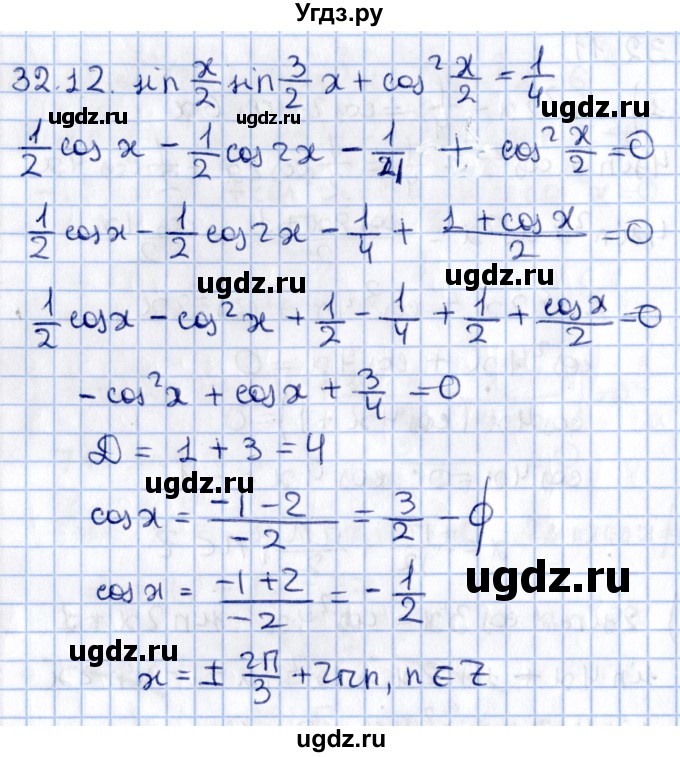 Угдз.ру
32.12. sin x/2 sin 3/2 x + cos² x/2 = 1/4
ugdz.ru
ugdz.ru
ugdz.ru
1/2 cos x - 1/2 cos 2x - 1/4 + cos² x/2 = 0
1/2 cos x - 1/2 cos 2x - 1/4 + (1 + cos x)/2 = 0
ugdz.ru
ugdz.ru
1/2 cos x - cos² x + 1/2 - 1/4 + 1/2 + cos x/2 = 0
- cos² x + cos x + 3/4 = 0
D = 1 + 3 = 4
ugdz.ru
cos x = (-1 - 2)/-2 = 3/2 - ∅
ugdz.ru
cos x = (-1 + 2)/-2 = - 1/2
ugdz.ru
x = ± 2π/3 + 2πn, n ∈ Z
ugdz.ru